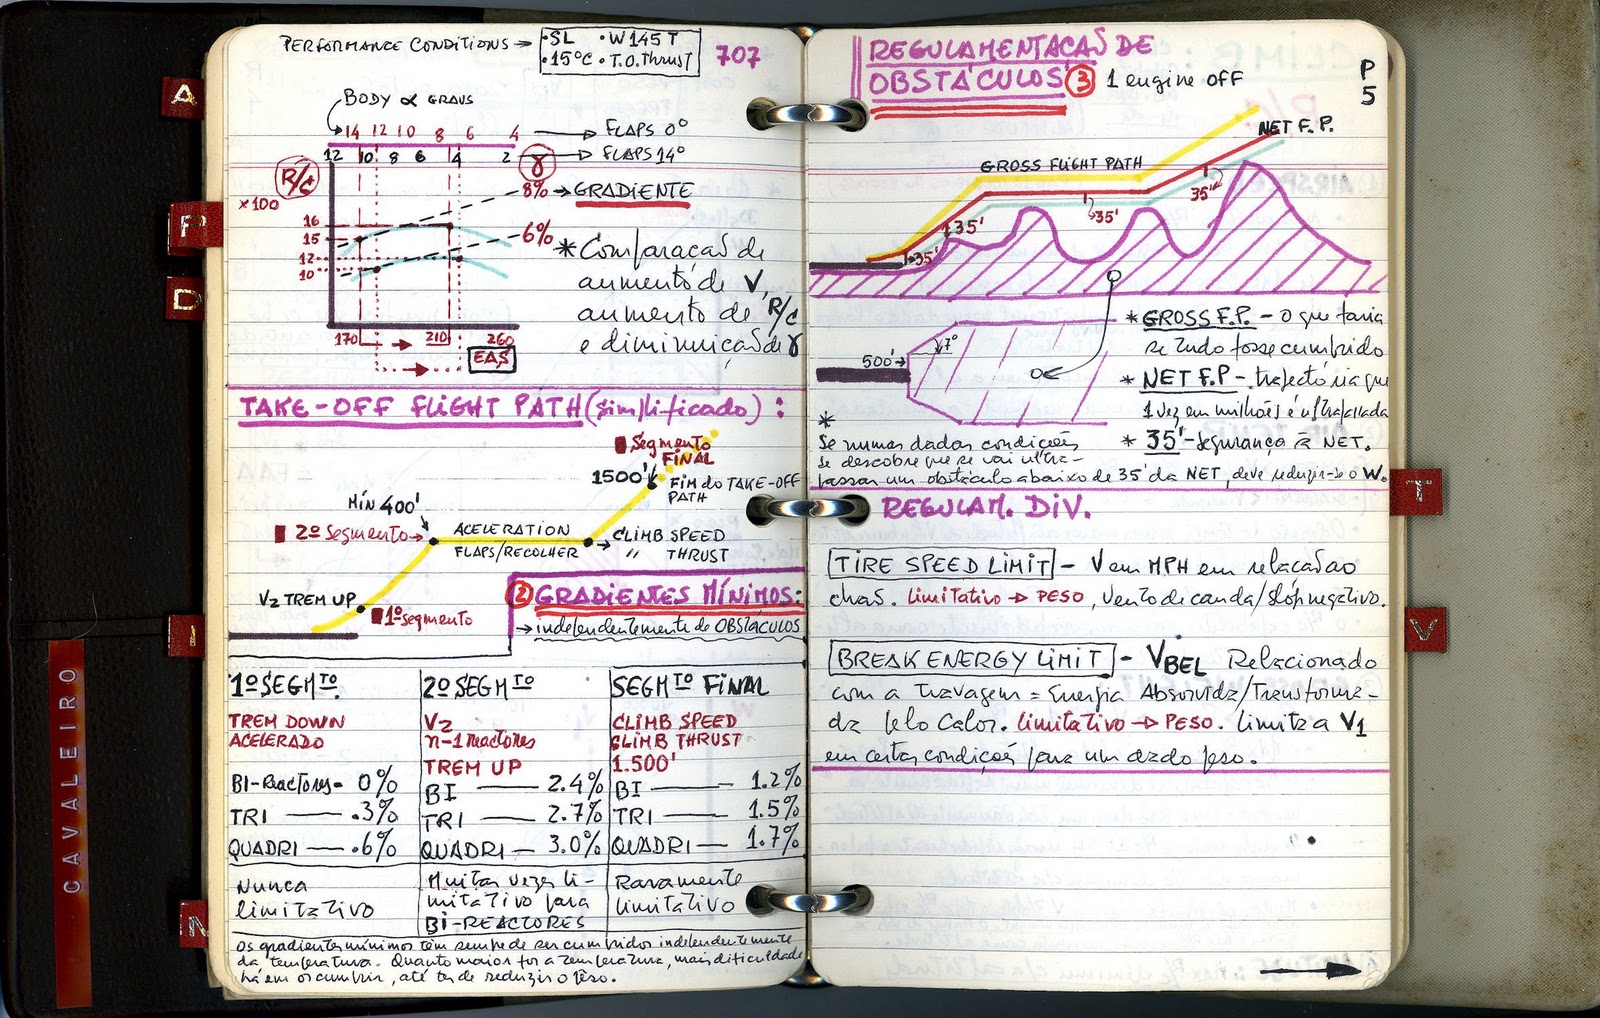 PERFORMANCE CONDITIONS →
• SL • W 145 T
• 15°C • T.O. Thrust
707
BODY ∝ GRAUS
14 12 10 8 6 4 → FLAPS 0°
12 10 8 6 4 2 → FLAPS 14°
R/C
×100
γ
8% → GRADIENTE
6%
16
15
12
10
170 → 210 260
EAS
* Comparação de
aumento de V,
aumento de R/C
e diminuição de γ
TAKE-OFF FLIGHT PATH (simplificado):
Segmento
FINAL
1500'
FIM do TAKE-OFF
PATH
MÍN 400'
2º Segmento →
ACELERATION
FLAPS/RECOLHER
→ CLIMB SPEED
" THRUST
V2 TREM UP
1º segmento
② GRADIENTES MÍNIMOS:
→ independentemente de OBSTÁCULOS
1º SEGMTO.
TREM DOWN
ACELERADO
BI-Reactores - 0%
TRI — .3%
QUADRI — .6%
Nunca
limitativo
2º SEGMTO
V2
n-1 reactores
TREM UP
BI — 2.4%
TRI — 2.7%
QUADRI — 3.0%
Muitas vezes li-
mitativo para
BI-REACTORES
SEGMTO FINAL
CLIMB SPEED
CLIMB THRUST
1.500'
BI — 1.2%
TRI — 1.5%
QUADRI — 1.7%
Raramente
limitativo
Os gradientes mínimos têm sempre de ser cumpridos independentemente
da temperatura. Quanto maior for a temperatura, mais dificuldade
há em os cumprir, até ter de reduzir o peso.
REGULAMENTAÇÃO DE
OBSTÁCULOS ③ 1 engine OFF
P
5
NET F.P.
GROSS FLIGHT PATH
35'
35'
35'
35'
500' →
7°
* GROSS F.P. - o que faria
se tudo fosse cumprido
* NET F.P - trajectória que
1 vez em milhões é ultrapassada
* 35' - segurança à NET.
*
Se numas dadas condições
se descobre que se vai ultra-
passar um obstáculo abaixo de 35' da NET, deve reduzir-se o W.
REGULAM. DIV.
TIRE SPEED LIMIT - V em MPH em relação ao
chão. Limitativo → PESO, vento de cauda/slop negativo.
BREAK ENERGY LIMIT - VBEL Relacionado
com a travagem = Energia Absorvida/Transforma-
da pelo Calor. Limitativo → PESO. Limita a V1
em certas condições para um dado peso.
A
P
D
I
N
T
V
CAVALEIRO